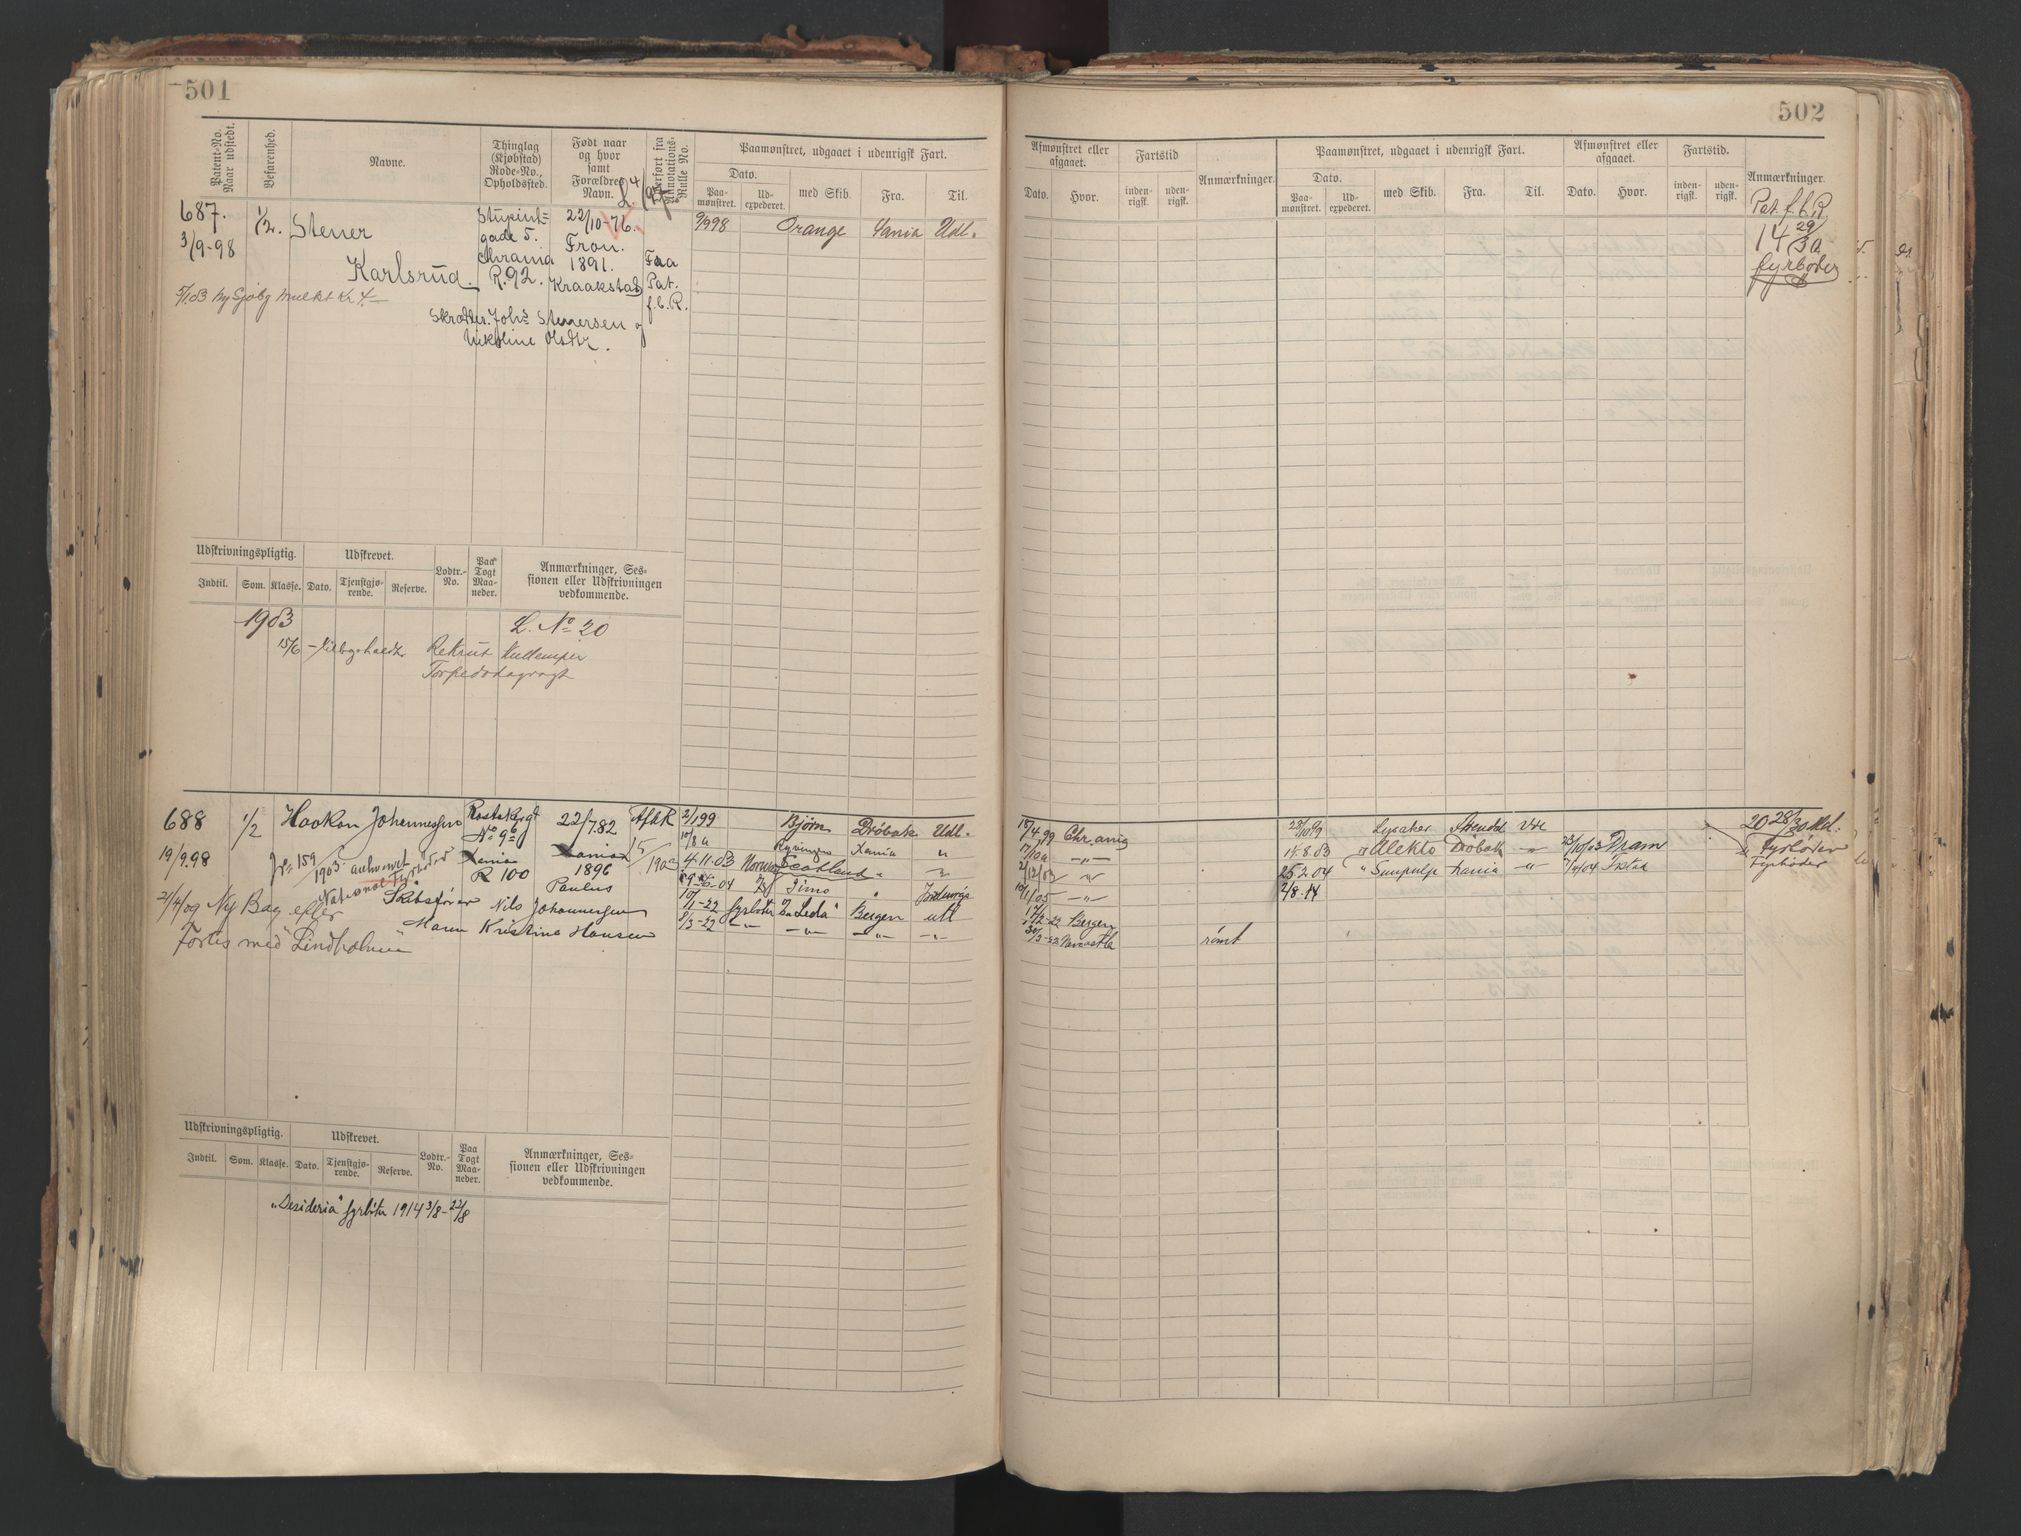 501
Patent-No.
Naar udstedt.
Befarenhed.
Navne.
Thinglag
(Kjøbstad)
Rode-No.,
Opholdssted.
Født naar
og hvor
samt
Forældres
Navn.
Overført fra
Annotations-
Rulle No.
Paamønstret, udgaaet i udenrigsk Fart.
Dato.
Paa-
mønstret.
Ud-
expederet.
med Skib.
Fra.
Til.
687.
3/9-98
1/2.
Stener
Karlsrud.
gade 5.
Chrania
R. 92.
22/10-76.
Fron.
1891.
Kraakstad
Faa
Pat.
f.b.R.
9/998
Orange
Xania
Udl.
5/1.03 Ny Sjøbg Mulkt Kr 4.-
Skrædder. Johs Stenersen og
Nikoline Olsdtr.
Udskrivningspligtig.
Udskrevet.
Lodtr.-
No.
Paa
Togt
Maa-
neder.
Anmærkninger, Ses-
sionen eller Udskrivningen
vedkommende.
Indtil.
Som.
Klasse.
Dato.
Tjenstgjø-
rende.
Reserve.
1903
L. No 20
15/6
Rekrut Kullemper
688
19/9.98
1/2
Haakon Johannessen
No 9
Xania
R 100
22/7.82
Xania
1896
Paulus
Afkk
5/1902
Jr. 159
1903 anhvervet
National Fyrbøder
Skibsfører Nils Johannessen
Marn Kristine Hansen
21/4/09 Ny Bog efter
Forlis med "Lindholmen"
2/199
Bjørn
Drøbak
Udl.
10/8a
Kyvingen
Xania
"
4-11-03
Norway
Scotland
"
"
Simo
"
1-22
fyrbøter
"Leda"
Bergen
utl
8/3-22
-"-
-"-
-"-
-"-
Udskrivningspligtig.
Udskrevet.
Lodtr.-
No.
Paa
Togt
Maa-
neder.
Anmærkninger, Ses-
sionen eller Udskrivningen
vedkommende.
Indtil.
Som.
Klasse.
Dato.
Tjenstgjø-
rende.
Reserve.
"Desideria" fyrbøter 1914 3/8-22/8
502
Afmønstret eller
afgaaet.
Fartstid
Anmærkninger.
Paamønstret, udgaaet i udenrigsk Fart.
Afmønstret eller
afgaaet.
Fartstid.
Anmærkninger.
Dato.
Hvor.
inden-
rigsk.
uden-
rigsk.
Dato.
Paa-
mønstret.
Ud-
expederet.
med Skib.
Fra.
Til.
Dato.
Hvor.
inden-
rigsk.
uden-
rigsk.
Pat. f.b.R.
14 29/3a
fyrbøder
18/4.99
Chrania
17/10a
-"-
2/12/03
-"-
10/1/05
-"-
17/2-22
Bergen
30/3-22
Newcastle
rømt
28/10 99
Lysaker
Arendal
Vde
14.8.03
Alekto
Drøbak
-"-
23/10/03
Dram
25.2.04
"
Sunpulp
Xania
-"-
7/4/04
Xania
2/8-14
20 28/30 Md.
Fyrbøder
Fyrbøder